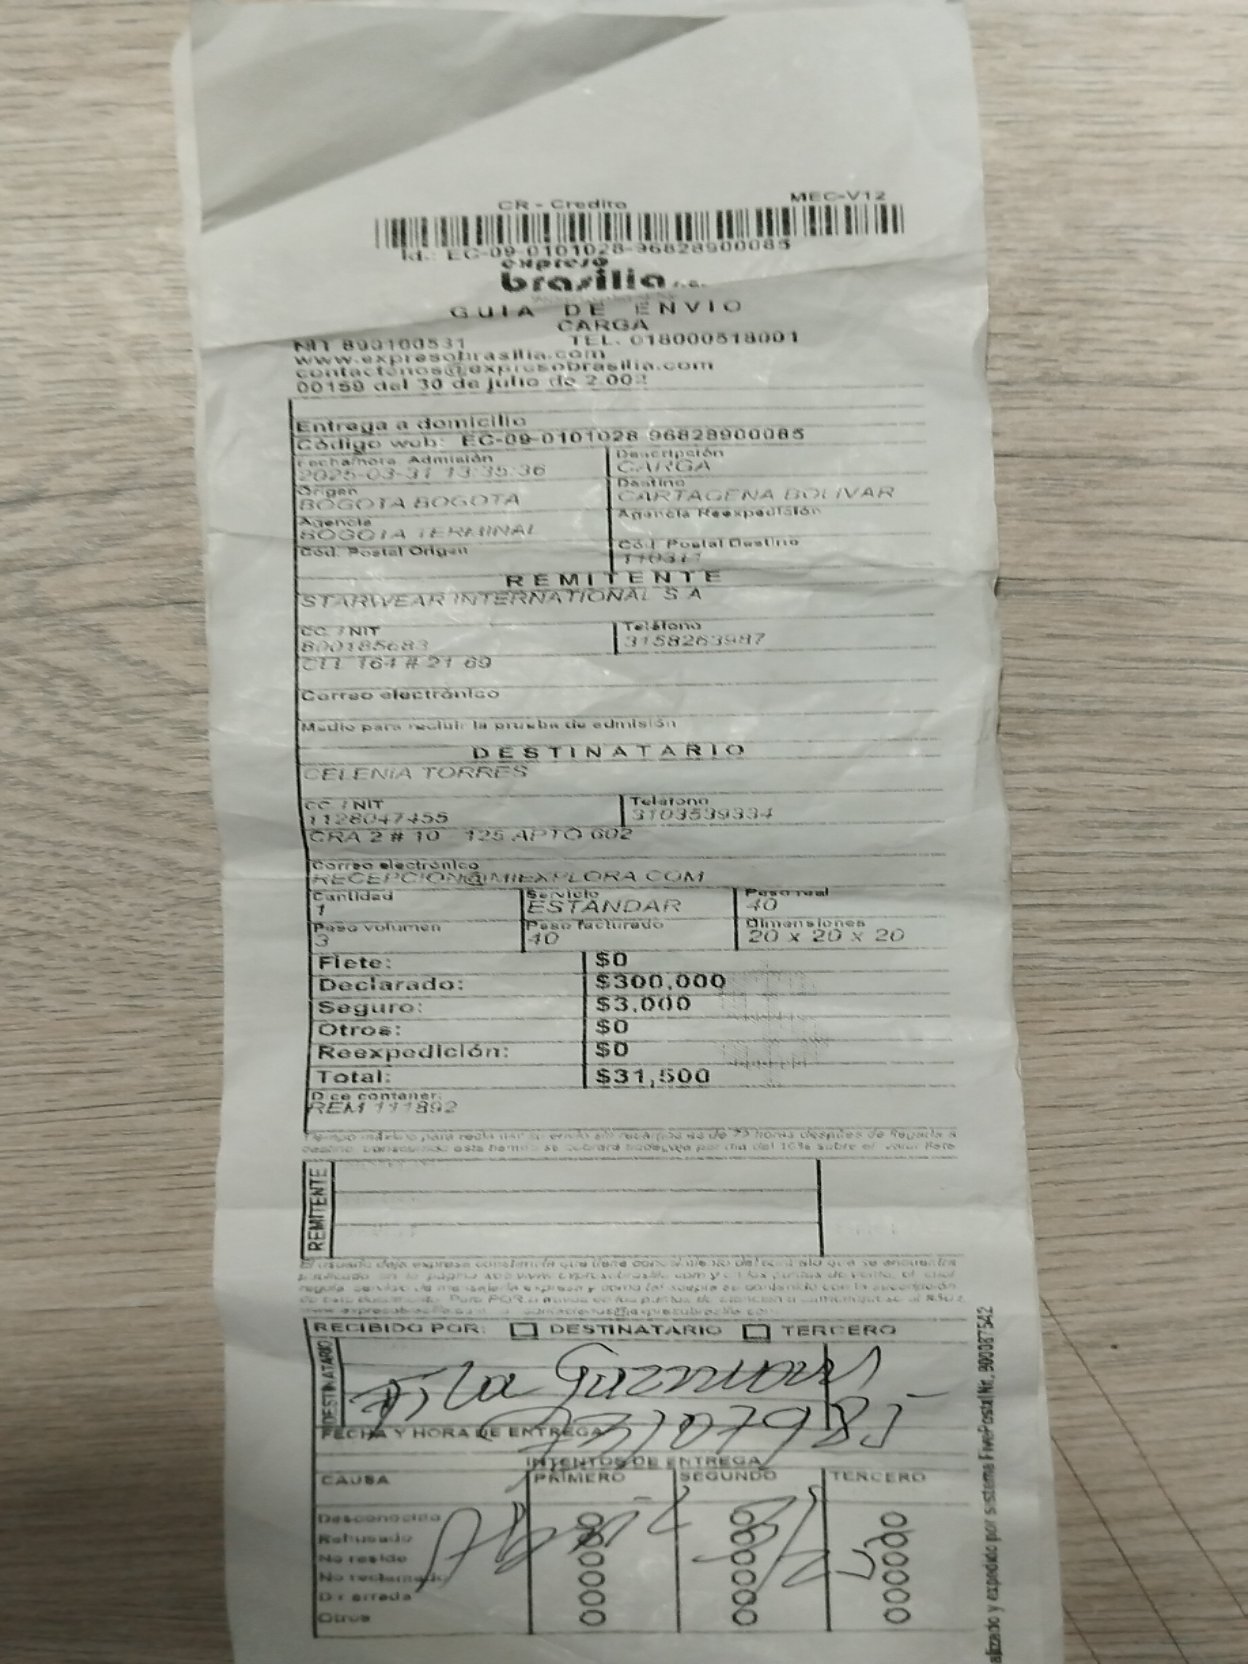 CR - Credito MEC-V12
Id.: EC-09-0101028-96828900085
expreso
brasilia s.a.
GUIA DE ENVIO
CARGA
NIT 890100531 TEL. 018000518001
www.expresobrasilia.com
contactenos@expresobrasilia.com
00159 del 30 de julio de 2.002
Entrega a domicilio
Código web: EC-09-0101028 96828900085
Fecha/hora Admisión Descripción
2025-03-31 13:35:36 CARGA
Origen Destino
BOGOTA BOGOTA CARTAGENA BOLIVAR
Agencia Agencia Reexpedición
BOGOTA TERMINAL
Cód. Postal Origen Cód. Postal Destino
110311
REMITENTE
STARWEAR INTERNATIONAL S A
CC / NIT Teléfono
800185683 3158263987
CLL 164 # 21 69
Correo electrónico
Medio para recibir la prueba de admisión
DESTINATARIO
CELENIA TORRES
CC / NIT Teléfono
1128047455 3103539334
CRA 2 # 10 125 APTO 602
Correo electrónico
RECEPCION@MIEXPLORA.COM
Cantidad Servicio Peso real
1 ESTANDAR 40
Peso volumen Peso facturado Dimensiones
3 40 20 x 20 x 20
Flete: $0
Declarado: $300,000
Seguro: $3,000
Otros: $0
Reexpedición: $0
Total: $31,500
Dice contener:
REM 111892
REMITENTE
RECIBIDO POR: DESTINATARIO TERCERO
DESTINATARIO
Guzman
FECHA Y HORA DE ENTREGA
INTENTOS DE ENTREGA
CAUSA PRIMERO SEGUNDO TERCERO
Desconocido
Rehusado
No reside
No reclamado
Dir errada
Otros
alizado y expedido por sistema FivePostal Nit. 900087542